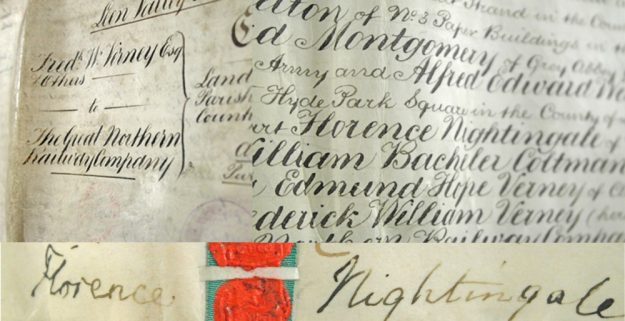 Leen Valley
Fredk. W. Verney Esq.
& Others
to
The Great Northern
Railway Company
Land
Parish
County
Strand in the Coun
of No. 3 Paper Buildings in th
d Montgomery of Grey Abbey
Army and Alfred Edward
Hyde Park Square in the County of
Florence Nightingale of
illiam Bachiler Coltman
Edmund Hope Verney of C
derick William Verney
Northern Railway Compan
Florence Nightingale